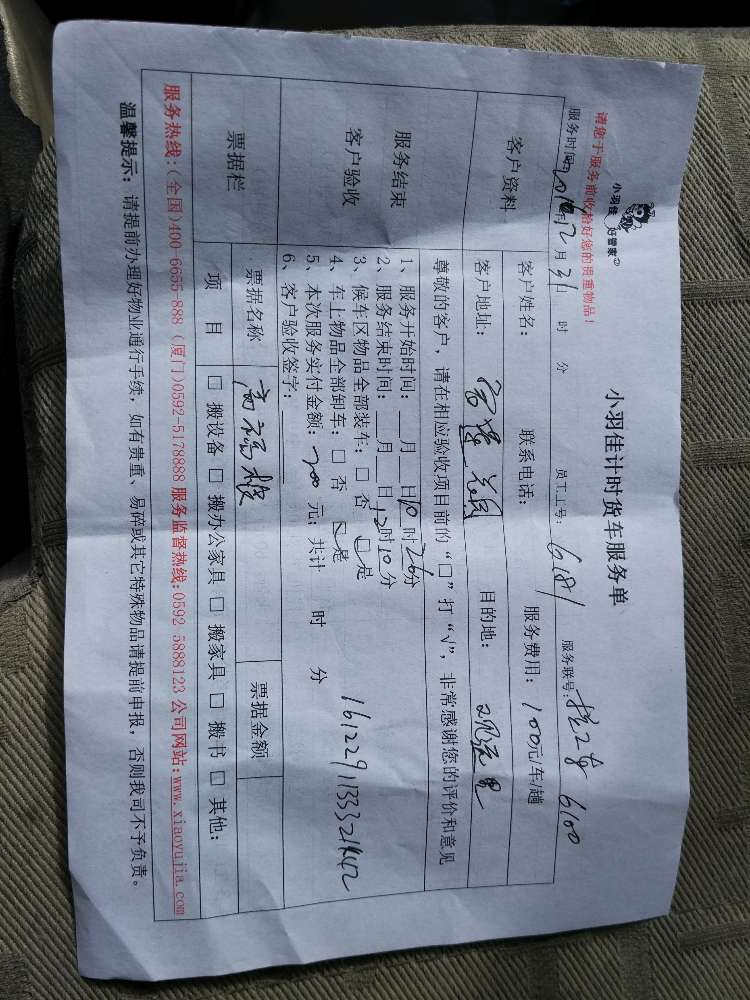 小羽佳 好管家
小羽佳计时货车服务单
请您于服务前收拾好您的贵重物品！
服务时间: 月31 时 分 员工工号: 6181 服务联号: 6100
客户资料 客户姓名: 联系电话: 服务费用: 100元/车/趟
客户地址: 目的地:
尊敬的客户，请在相应验收项目前的“□”打“√”，非常感谢您的评价和意见
服务结束
客户验收
1、服务开始时间: 月 日10时26分
2、服务结束时间: 月 日12时10分
3、候车区物品全部装车: □ 否 ☑是
4、车上物品全部卸车: □ 否 ☑是
5、本次服务实付金额: 元; 共计 时 分
6、客户验收签字:
1612291133321442
票据栏 票据名称 票据金额
项 目 □ 搬设备 □ 搬办公家具 □ 搬家具 □ 搬书 □ 其他:
服务热线:(全国)400-6655-888 (厦门)0592-5178888 服务监督热线:0592 5888123 公司网站:www.xiaoyujia.com
温馨提示: 请提前办理好物业通行手续，如有贵重、易碎或其它特殊物品请提前申报，否则我司不予负责。